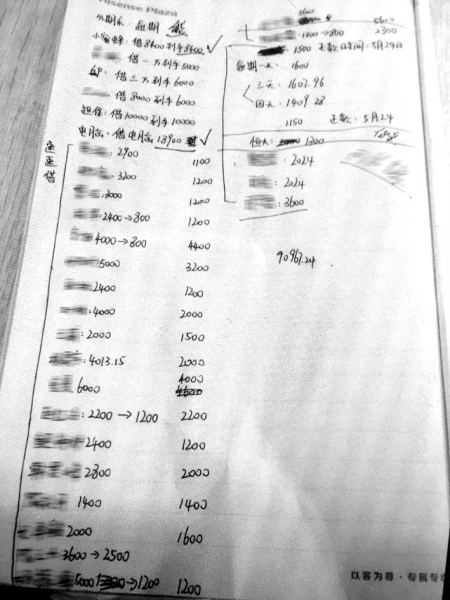 Hisense Plaza
分期系 逾期
小蜜蜂: 借8400到手8400 ✓
借一万到手5000
借三万到手6000
借8000到手6000
担保: 借10000到手10000
电用品: 借电用品 13900 ✓
逾重借
: 2900 1100
: 3200 1200
: 3000 1200
: 2400→800 1200
4000→800 4400
5000 3200
2400 1200
: 4000 2000
: 2000 1500
: 4013.15 2000
6000 4000
: 2200→1200 2200
2400 1200
2800 2000
1400 1400
2000 1600
3600→2500
5000 →1200 1200
5600
1200→800 2300
1500 还款日时间: 5月24日
逾期一天: 1600
三天: 1607.96
四天: 1409.28
1150 还款: 5月24
恒大: 1300
: 2024
: 2024
: 3600
90967.24
以客为尊·专属专